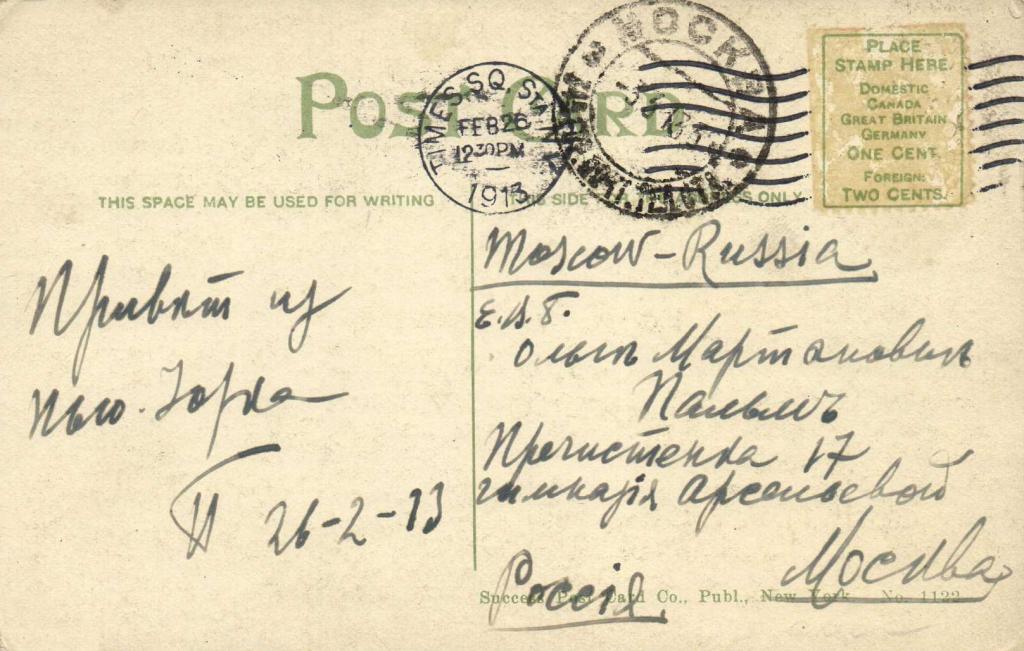 POST CARD
TIMES SQ. STA. N.Y.
FEB 26
12 30 PM
1913
МОСКВА
PLACE
STAMP HERE.
DOMESTIC
CANADA
GREAT BRITAIN
GERMANY
ONE CENT.
FOREIGN:
TWO CENTS.
THIS SPACE MAY BE USED FOR WRITING
THIS SIDE ONLY
Привѣт из
Нью-Iорка
26-2-13
Moscow-Russia
Е.В.Б.
Ольгѣ Мартыновнѣ
Пальмъ
Пречистенка 17
гимназія Арсеньевой
Москва
Россія.
Success Post Card Co., Publ., New York No. 1122